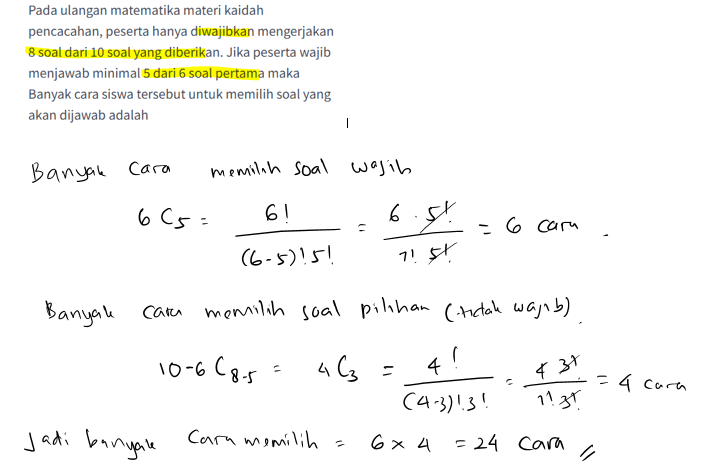 Pada ulangan matematika materi kaidah
pencacahan, peserta hanya diwajibkan mengerjakan
8 soal dari 10 soal yang diberikan. Jika peserta wajib
menjawab minimal 5 dari 6 soal pertama maka
Banyak cara siswa tersebut untuk memilih soal yang
akan dijawab adalah
Banyak cara memilih soal wajib
6 C5 = 6! / (6-5)! 5! = 6 . 5! / 1! 5! = 6 cara .
Banyak cara memilih soal pilihan (tidak wajib).
10-6 C8-5 = 4C3 = 4! / (4-3)! 3! = 4 3! / 1! 3! = 4 cara
Jadi banyak cara memilih = 6 x 4 = 24 cara //